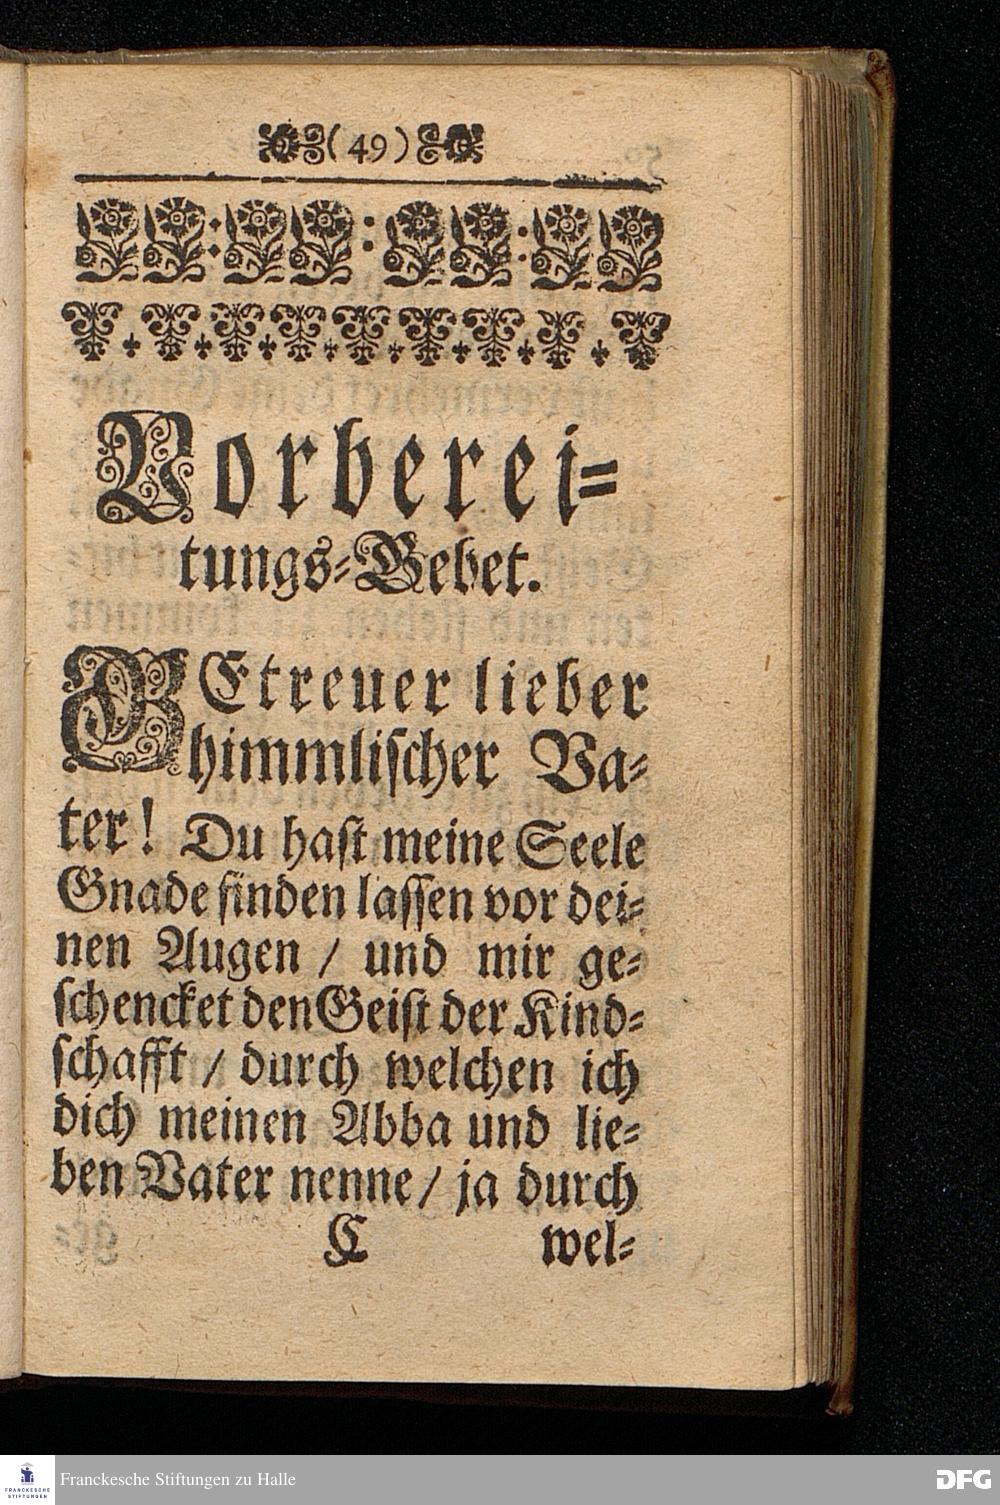 (49)
Vorberei=
tungs=Gebet.
GEtreuer lieber
himmlischer Va=
ter! Du hast meine Seele
Gnade finden lassen vor dei=
nen Augen / und mir ge=
schencket den Geist der Kind=
schafft / durch welchen ich
dich meinen Abba und lie=
ben Vater nenne / ja durch
C wel=
FRANCKESCHE
STIFTUNGEN
Franckesche Stiftungen zu Halle
DFG